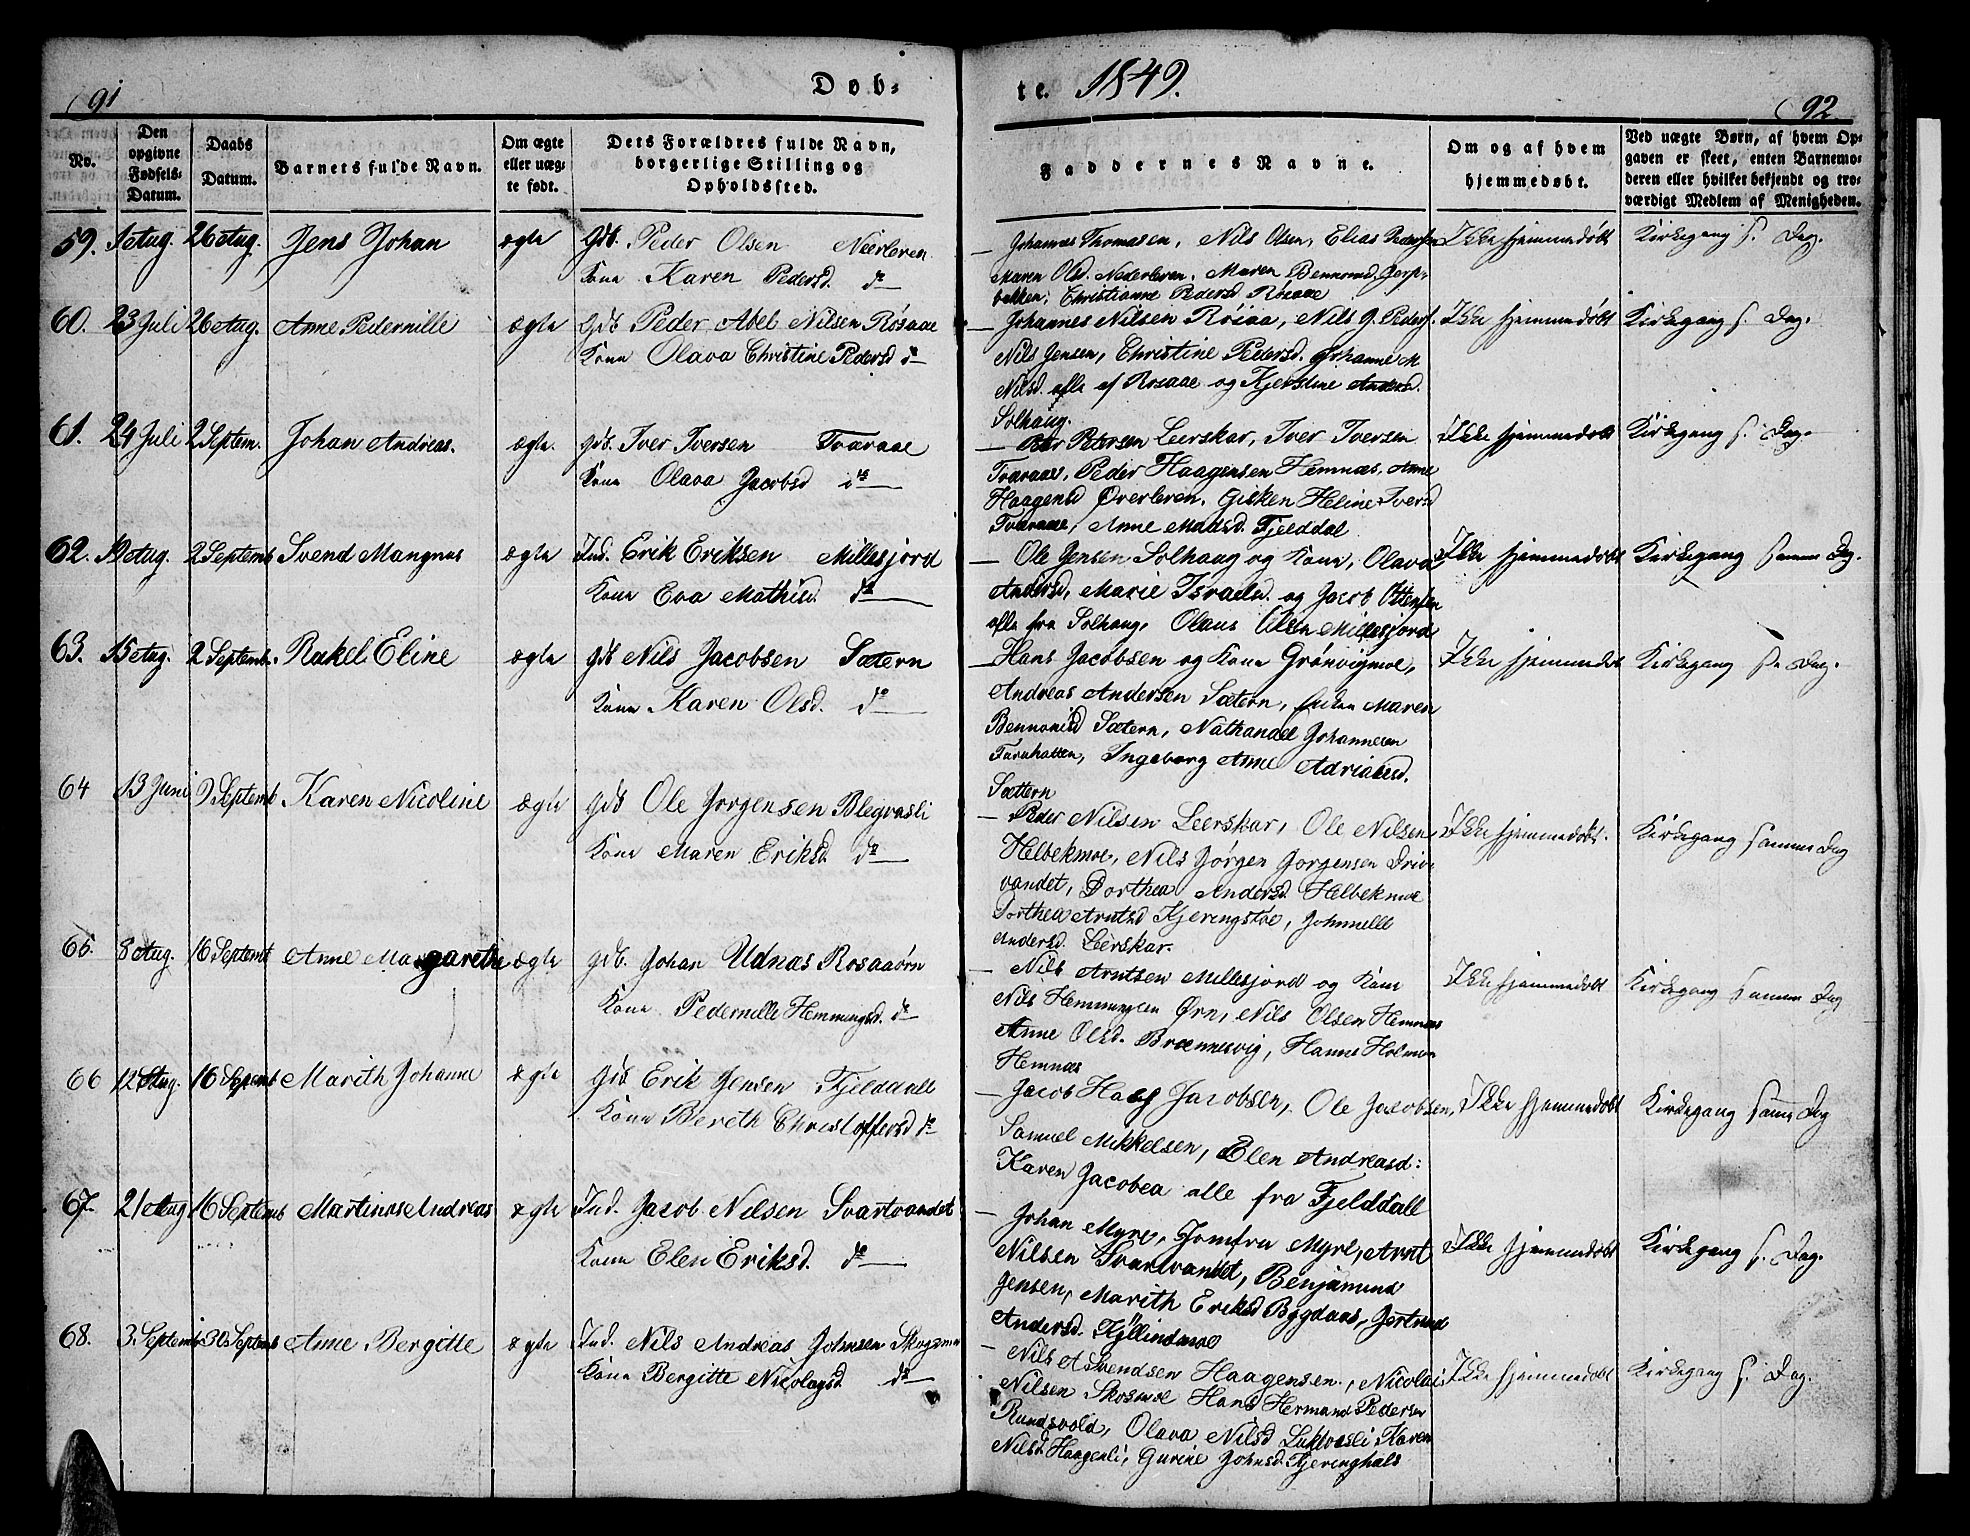 91
Døb-
te. 1849.
92
No.
Den opgivne Fødsels-Datum.
Daabs Datum.
Barnets fulde Navn.
Om ægte eller uæg-te født.
Dets Forældres fulde Navn, borgerlige Stilling og Opholdssted.
Faddernes Navne.
Om og af hvem hjemmedøbt.
Ved uægte Børn, af hvem Op-gaven er skeet, enten Barnemo-deren eller hvilket bekjendt og tro-værdigt Medlem af Menigheden.
59. 1 Aug. 26 Aug. Jens Johan ægte Gdb. Peder Olsen Neerleren
Kone Karen Pedersd do
— Johannes Thomasen, Nils Olsen, Elias Pedersen
Maren Olsd. Nederleren, Maren Bennonsd
Christianne Pedersd Røsaae
Ikke hjemmedøbt Kirkegang s. Dag.
60. 23 Juli 26 Aug. Anne Pedernille ægte Gdb Peder Abel Nilsen Røsaae
Kone Olava Christine Pedersd do
— Johannes Nilsen Røsaa, Nils G. Peders.
Nils Jensen, Christine Pedersd. Johanne M
Nilsd. alle af Røsaae og Kjerstine Andersd.
Solhaug.
Ikke hjemmedøbt Kirkegang s. Dag.
61. 24 Juli 2 Septem. Johan Andreas. ægte. Gdb. Iver Iversen Tvaraae
Kone Olava Jacobsd do
— Peder Petersen Leerskar, Iver Iversen
Tvaraae, Peder Haagensen Hemnæs, Anne
Haagensd Overleren, Gisken Heline Iversd
Tvaraae, Anne Madsd. Fjelddal
Ikke hjemmedøbt Kirkegang s. Dag.
62. 19 Aug. 2 Septemb Svend Mangnus ægte Ind. Erik Eriksen Millesjord
Kone Eva Mathisd. do
— Ole Jensen Solhaug og Kone, Olava
Andersd, Marie Israelsd. og Jacob Ottensen
alle fra Solhaug, Olaus Olsen Millesjord
Ikke hjemmedøbt Kirkegang samme Dag.
63. 15 Aug. 2 Septemb. Rakel Eline ægte Gdb Nils Jacobsen Sætern
Kone Karen Olsd. do
— Hans Jacobsen og Kone Grønvigmoe,
Andreas Andersen Sætern, Maren
Bennonisd Sætern, Nathanael Johannesen
Ingeborg Anne Adriansd.
Sættern
Ikke hjemmedøbt Kirkegang s. Dag.
64 13 Juni 9 Septemb Karen Nicoline ægte Gdb Ole Jørgensen Blegvasli
Kone Maren Eriksd do
— Peder Nilsen Leerskar, Ole Nilsen
Helbekmoe, Nils Jørgen Jorgensen Driv-
vandet, Dorthea Andersd Helbekmoe
Dorthea Arntsd Kjeringstoe, Johnnelle
Andersd. Leerskar.
Ikke hjemmedøbt. Kirkegang samme Dag
65. 8 Aug. 16 Septemt Anne Margarethe ægte Gdb. Johan Udnæs Rosaaørn
Kone Pedernille Hemmingsd. do
— Nils Arntsen Millesjord og Kone
Nils Hemmingsen Ørn, Nils Olsen Hemnæs
Anne Olsd. Brænnesvig, Hanne Holmen
Hemnæs
Ikke hjemmedøbt Kirkegang samme Dag
66 12 Aug. 16 Septemb Marith Johanne ægte Gdb Erik Jensen Fjelddall
Kone Bereth Christoffersd do
— Jacob Haag Jacobsen, Ole Jacobsen,
Samuel Mikkelsen, Elen Andreasd:
Karen Jacobea alle fra Fjelddall
Ikke hjemmedøbt Kirkegang samme Dag
67. 21 Aug 16 Septemb Martinus Andreas ægte Ind. Jacob Nilsen Svartvandet
Kone Elen Eriksd. do
— Johan Myre, Jomfru Myre, Arnt
Nilsen Svartvandet, Benjamin
Jensen, Marith Eriksd Bygdaas, Gertrud
Andersd. Kjellindmoe
Ikke hjemmedøbt Kirkegang s. Dag.
68. 3. Septemb 30 Septemb Anne Bergitte ægte Ind. Nils Andreas Johnsen Skogsmoe
Kone Bergitte Nicolaysd. do
— Nils A Svendsen Haagensen, Nicolai
Nilsen Skosmoe Hans Hermand Pedersen
Rundsvold, Olava Nilsd Luktvasli, Karen
Nilsd Haagenli, Gurine Johnsd. Kjeringhals
Ikke hjemmedøbt Kirkegang s. Dag.